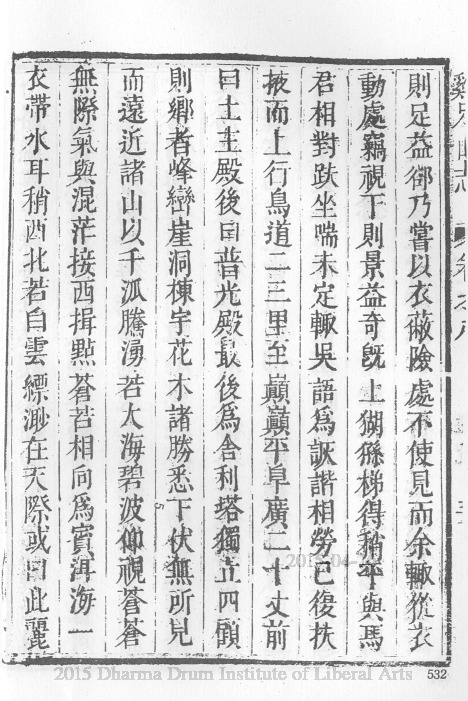 則足益卻乃嘗以衣蔽險處不使見而余輙從衣
動處竊視下則景益奇旣上猢猻梯得稍平與馬
君相對趺坐喘未定輙吳語為詼諧相勞已復扶
掖而上行鳥道二三里至巔巔平阜廣二十丈前
曰土主殿後曰普光殿最後為舍利塔獨立四顧
則鄉者峰巒崖洞棟宇花木諸勝悉下伏無所見
而遠近諸山以千派騰湧若大海碧波仰視蒼蒼
無際氣與混茫接西揖點蒼若相向為賓洱海一
衣帶水耳稍西北若白雲縹渺在天際或曰此麗
532
2015 Dharma Drum Institute of Liberal Arts